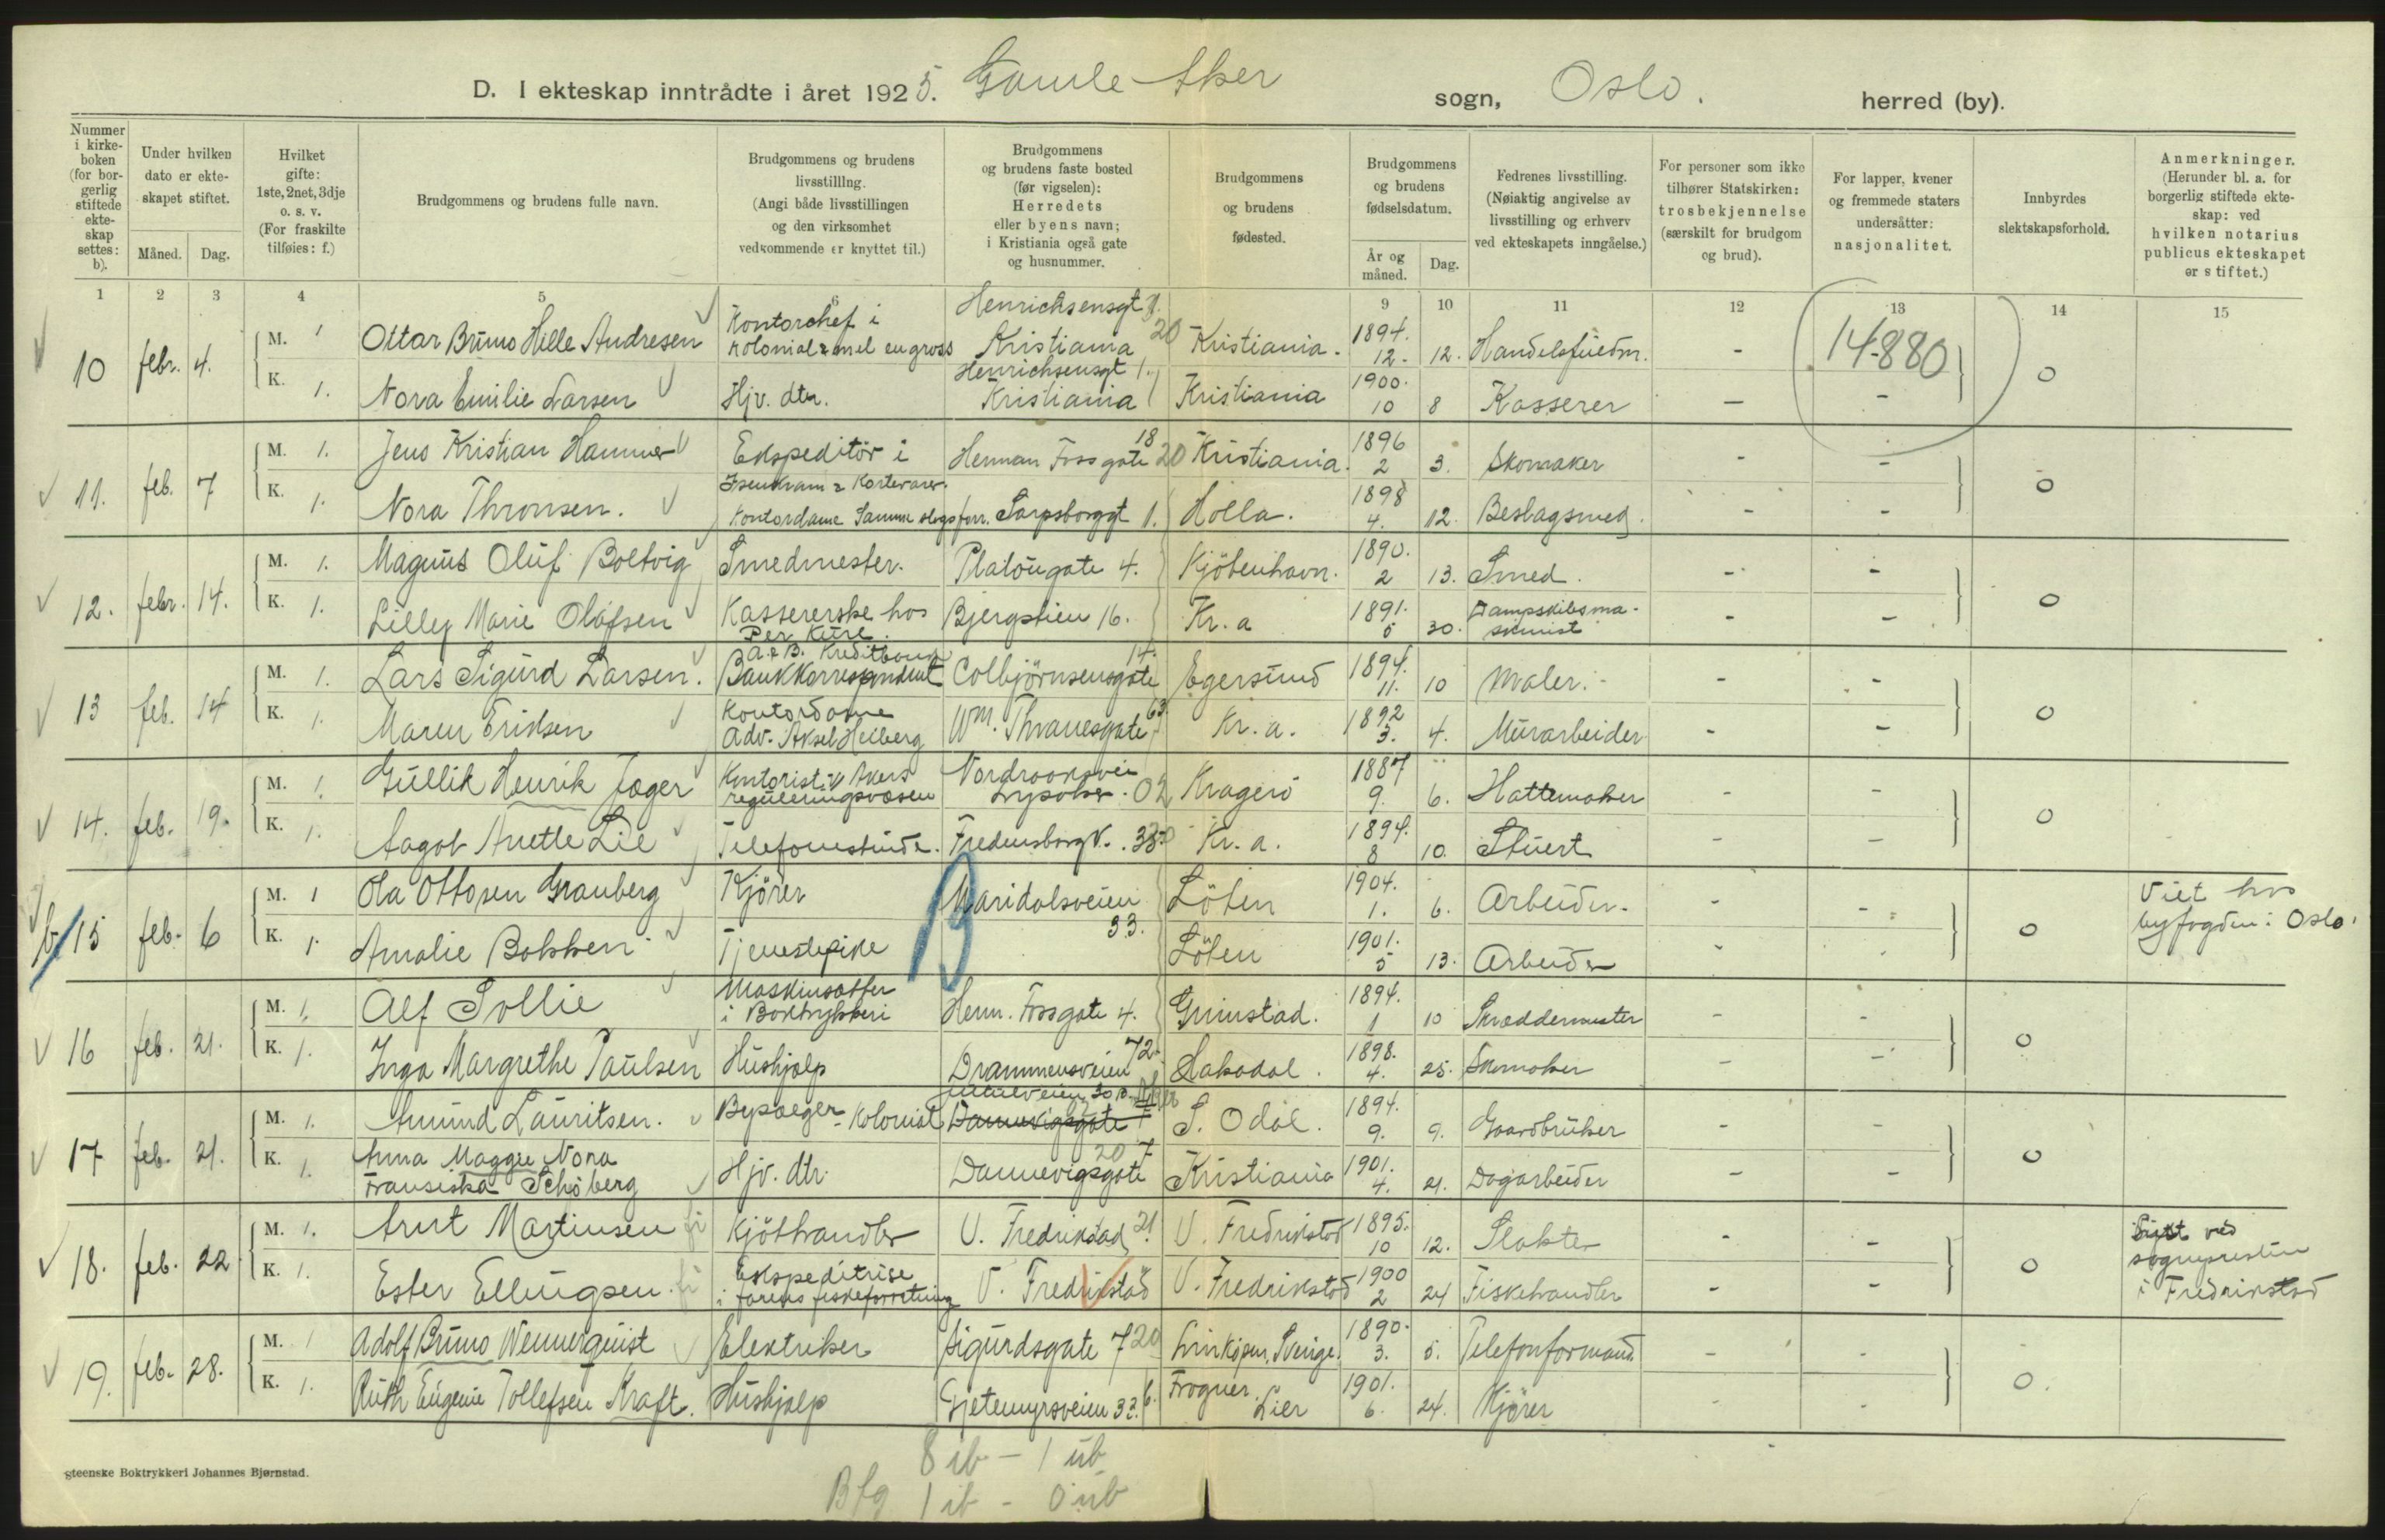 D. I ekteskap inntrådte i året 1925. Gamle Aker sogn, Oslo. herred (by).
Nummer i kirkeboken (for borgerlig stiftede ekteskap settes: b).
Under hvilken dato er ekteskapet stiftet.
Måned. Dag.
Hvilket gifte: 1ste, 2net, 3dje o. s. v. (For fraskilte tilføies: f.)
Brudgommens og brudens fulle navn.
Brudgommens og brudens livsstilling. (Angi både livsstillingen og den virksomhet vedkommende er knyttet til.)
Brudgommens og brudens faste bosted (før vigselen): Herredets eller byens navn; i Kristiania også gate og husnummer.
Brudgommens og brudens fødested.
Brudgommens og brudens fødselsdatum.
År og måned. Dag.
Fedrenes livsstilling. (Nøiaktig angivelse av livsstilling og erhverv ved ekteskapets inngåelse.)
For personer som ikke tilhører Statskirken: trosbekjennelse (særskilt for brudgom og brud).
For lapper, kvener og fremmede staters undersåtter: nasjonalitet.
Innbyrdes slektskapsforhold.
Anmerkninger. (Herunder bl. a. for borgerlig stiftede ekteskap: ved hvilken notarius publicus ekteskapet er stiftet.)
1 2 3 4 5 6 9 10 11 12 13 14 15
10 febr. 4. M. 1 Ottar Bruno Hille Andresen Kontorchef i kolonial & mel engros Henrichsensgt Kristiania 20 Kristiania. 1894. 12. 12. - 14880 0
K. 1. Nora Emilie Larsen Hjv. dtr. Henrichsensgt 1. Kristiania Kristiania 1900. 10 8 Kasserer - -
11. feb. 7 M. 1. Jens Kristian Hammer Ekspeditör i Isenkram & Kortevarer. Herman Foss gate 18 20 Kristiania. 1896 2 3. Skomaker - - 0
K. 1. Nora Thronsen. Kontordame Samme slags forr. Sarpsborggt 1. Holla. 1898 4. 12. Beslagsmed. - -
12. febr. 14. M. 1. Magnus Oluf Boltvig Smedmester. Platougate 4. Kjöbenhavn. 1890. 2 13. Smed. - - 0
K. 1. Lilley Marie Olafsen Kassererske hos Per Kure. Bjergstien 16. Kr. a 1891. 5 30. Dampskibsmaskinist - -
13 feb. 14 M. 1. Lars Sigurd Larsen. Bankkorrespondent Colbjörnsensgate 14. Egersund 1894. 11. 10 Maler. - - 0
K. 1. Maren Eriksen Kontordame Adv. Aksel Heiberg Wm. Thranesgate 63. Kr. a. 1892 3. 4. Murarbeider - -
14. feb. 19. M. 1. Gullik Henrik Jæger Kontorist v/ Akers reguleringsvæsen Nordraaksvei 02 Kragerö 1887 9. 6. Hattemaker - - 0
K. 1. Aagot Anette Lie Fredensborgv. Kr. a. 1894. 8 10. Stuert - -
b. 15 feb. 6 M. 1 Ola Ottosen Granberg Kjörer B Maridalsveien 33. Löten 1904. 1. 6. Arbeider. - - 0 Viet hos byfogden i Oslo.
K. 1. Amalie Bakken Tjenestepike Löten 1901. 5 13. Arbeider - -
16 feb. 21. M. 1. Alf Sollie Maskinsætter i Boktrykkeri Herm. Fossgate 4. Grimstad. 1894. 1 10 Skreddermester - - 0
K. 1. Inga Margrethe Paulsen Hushjælp Drammensveien 72. Hakadal. 1898. 4. 25. Skomaker - -
17 feb. 21. M. 1. Amund Lauritsen. Kolonial Dannevigsgate 7 S. Odal. 1894. 9. 9. Gaardbruker - - 0
K. 1. Anna Maggie Nora Fransiska Schöberg Hjv. dtr. Dannevigsgate 7 20 Kristiania 1901. 4. 21. Dagarbeider - -
18. feb. 22 M. 1. Arnt Martinsen Kjöthandler V. Fredrikstad 21. V. Fredrikstad 1895. 10 12. Slakter - - 0 ved sognepresten i Fredrikstad
K. 1. Ester Ellingsen Ekspeditrise i farens fiskeforretning V. Fredrikstad V. Fredrikstad 1900 2 24 Fiskehandler - -
19. feb. 28. M. 1 Adolf Bruno Wennerquist Elektriker Sigurdsgate 7 20 Linköpen, Sverige. 1890. 3. 5. Telefonformand - - 0.
K. 1. Ruth Eugenie Tollefsen Kraft. Hushjælp Gjetemyrsveien 33. Frogner. Lier 1901. 6. 24. Kjörer - -
steenske Boktrykkeri Johannes Bjørnstad.
8 ib - 1 ub
Bfg 1 ib - 0 ub